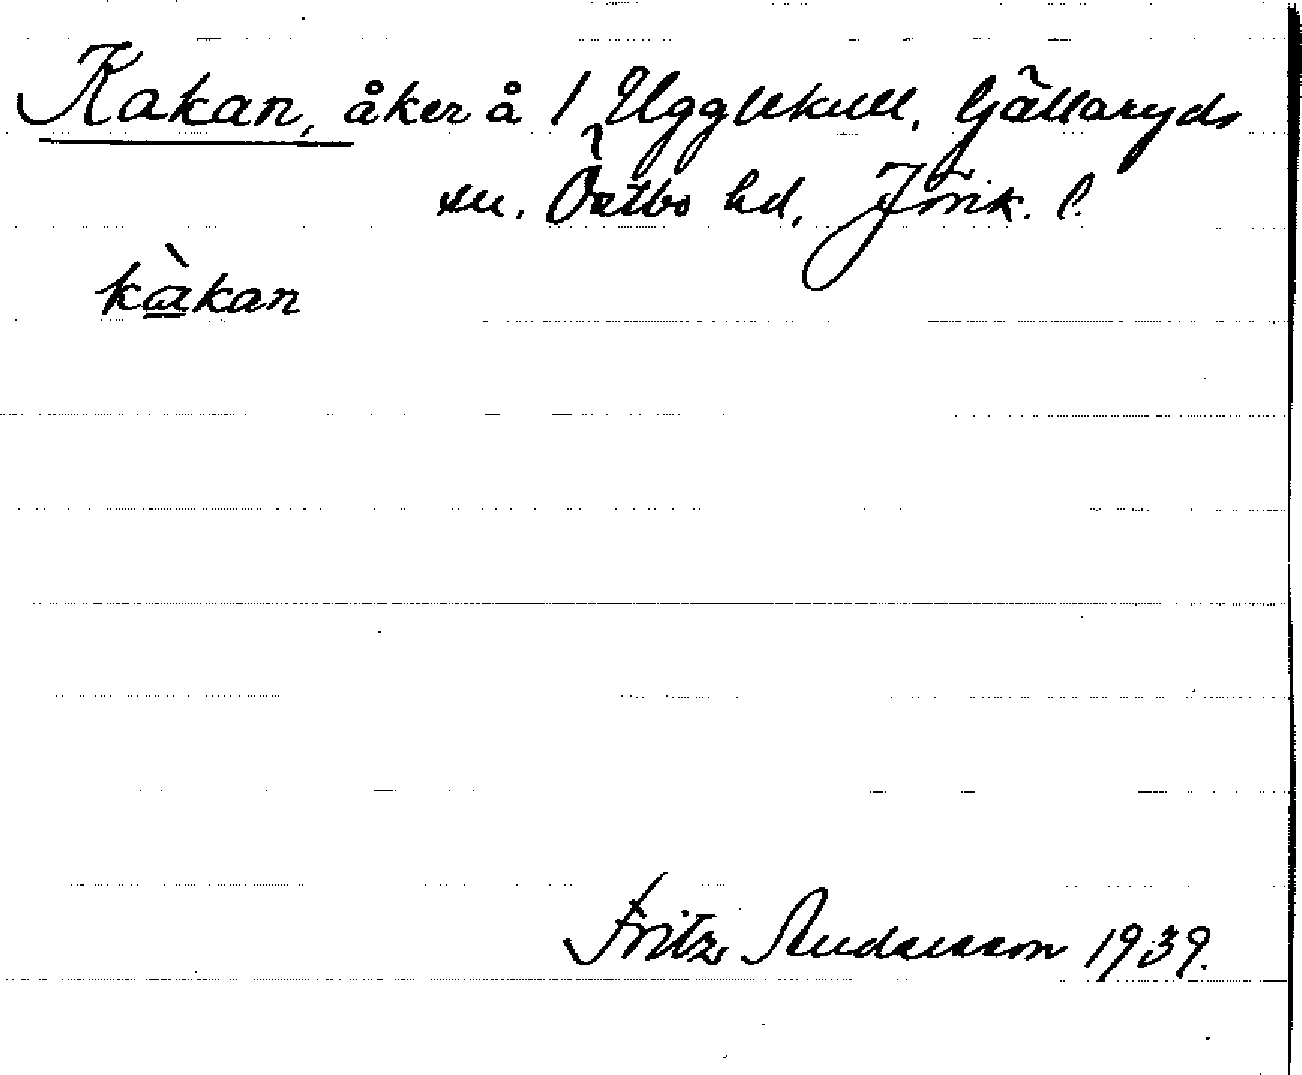 Kakan, åker å 1 Ugglekull, Gällaryds
sn. Östbo hd, Jönk. l.
kàkan
Fritz Andersson 1939.